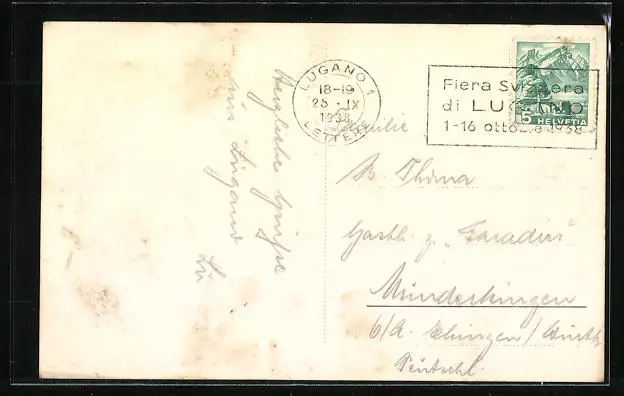 LUGANO 1
18-19
25 - IX
1938
LETTERE
Fiera Svizzera
di LUGANO
1-16 ottobre 1938
5 HELVETIA
Herzliche Grüsse
aus Lugano
Familie
B. Thoma
Gasth. z. „Paradies"
Munderkingen
b/A. Ehingen / Württb.
Deutschl.